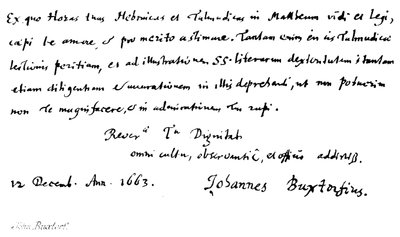 Ex quo Horas tuas Hebraicas et Talmudicas in Matthæum vidi et legi,
cæpi te amare, & pro merito æstimare. Tantam enim in eis Talmudicæ
lectionis peritiam, et ad illustrationem SS. literarum dexteritatem, & tantam
etiam diligentiam & accurationem in illis deprehendi, ut non potuerim
non te magnifacere, & in admirationem tui rapi.
Rever.ᵃ Tᵃ Dignitati
omni cultu, observantiâ, et officiis
12 Decemb. Ann. 1663. Johannes Buxtorfius.
John Buxtorf.